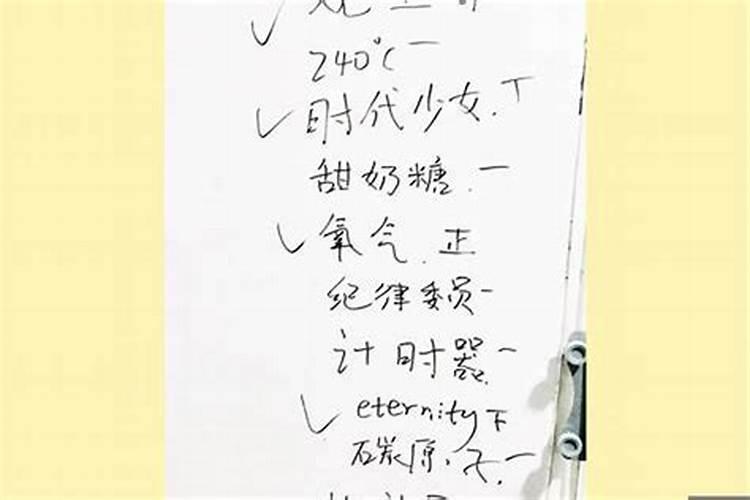 ✓
240℃ 一
✓ 时代少女. 丅
甜奶糖. 一
✓ 氧气. 正
纪律委员 一
计时器. 一
✓ eternity 下
碳炭原. 一